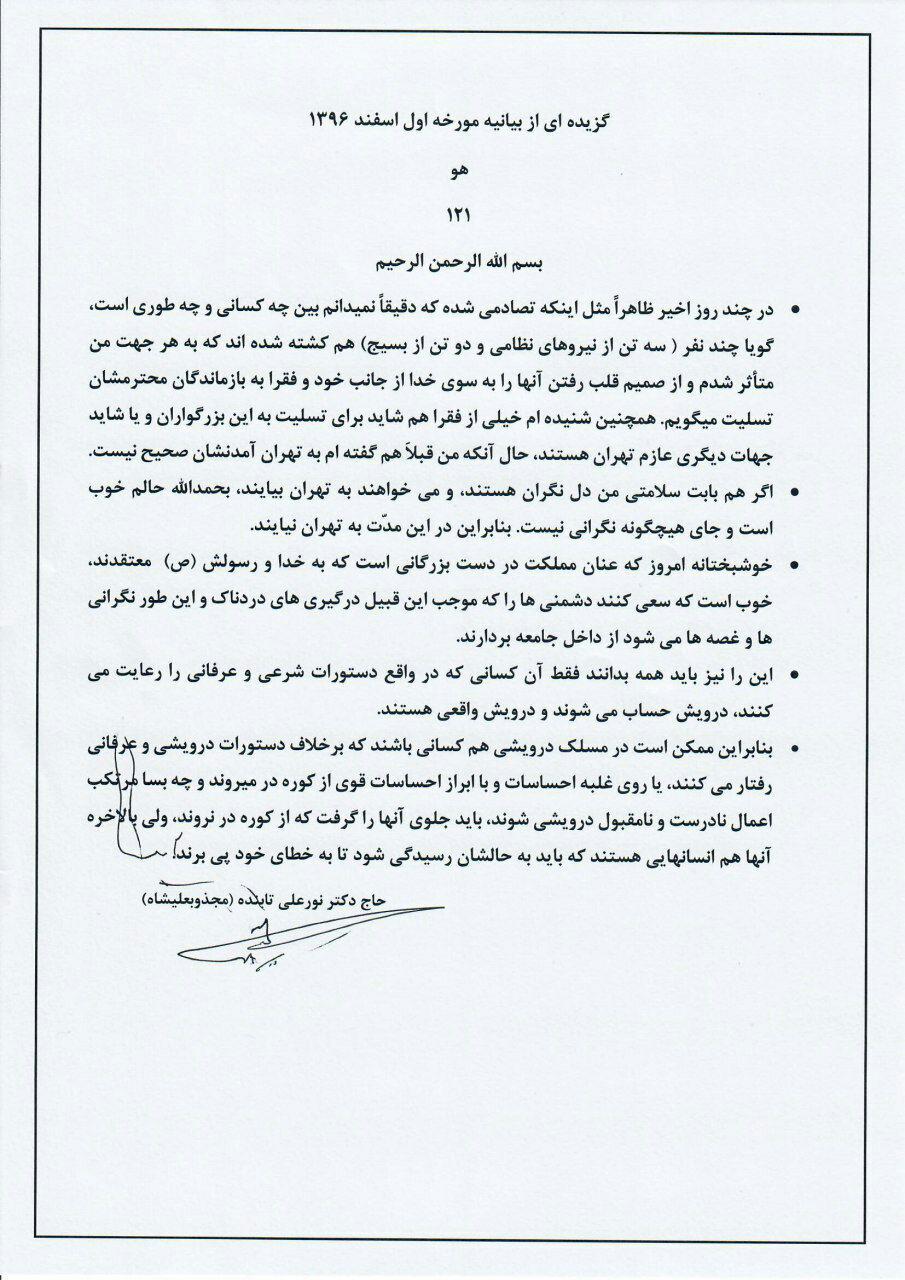 گزیده ای از بیانیه مورخه اول اسفند ۱۳۹۶
هو
۱۲۱
بسم الله الرحمن الرحیم
• در چند روز اخیر ظاهراً مثل اینکه تصادمی شده که دقیقاً نمیدانم بین چه کسانی و چه طوری است،
گویا چند نفر ( سه تن از نیروهای نظامی و دو تن از بسیج) هم کشته شده اند که به هر جهت من
متأثر شدم و از صمیم قلب رفتن آنها را به سوی خدا از جانب خود و فقرا به بازماندگان محترمشان
تسلیت میگویم. همچنین شنیده ام خیلی از فقرا هم شاید برای تسلیت به این بزرگواران و یا شاید
جهات دیگری عازم تهران هستند، حال آنکه من قبلاَ هم گفته ام به تهران آمدنشان صحیح نیست.
• اگر هم بابت سلامتی من دل نگران هستند، و می خواهند به تهران بیایند، بحمدالله حالم خوب
است و جای هیچگونه نگرانی نیست. بنابراین در این مدّت به تهران نیایند.
• خوشبختانه امروز که عنان مملکت در دست بزرگانی است که به خدا و رسولش (ص) معتقدند،
خوب است که سعی کنند دشمنی ها را که موجب این قبیل درگیری های دردناک و این طور نگرانی
ها و غصه ها می شود از داخل جامعه بردارند.
• این را نیز باید همه بدانند فقط آن کسانی که در واقع دستورات شرعی و عرفانی را رعایت می
کنند، درویش حساب می شوند و درویش واقعی هستند.
• بنابراین ممکن است در مسلک درویشی هم کسانی باشند که برخلاف دستورات درویشی و عرفانی
رفتار می کنند، یا روی غلبه احساسات و با ابراز احساسات قوی از کوره در میروند و چه بسا مرتکب
اعمال نادرست و نامقبول درویشی شوند، باید جلوی آنها را گرفت که از کوره در نروند، ولی بالاخره
آنها هم انسانهایی هستند که باید به حالشان رسیدگی شود تا به خطای خود پی برند.
حاج دکتر نورعلی تابنده (مجذوبعلیشاه)